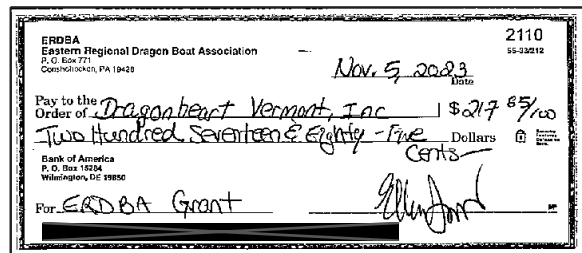 2110
ERDBA
Eastern Regional Dragon Boat Association
P. O. Box 771
Conshohocken, PA 19428
55-33/212
Nov. 5, 2023
Date
Pay to the Order of Dragonheart Vermont, Inc $ 217 85/100
Two Hundred Seventeen & Eighty-Five Dollars
Cents
Bank of America
P. O. Box 15284
Wilmington, DE 19850
For ERDBA Grant
MP